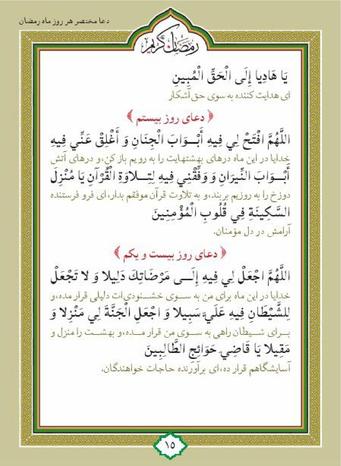 دعا مختصر هر روز ماه رمضان
رمضان کریم
يَا هَادِيا إِلَى الْحَقِّ الْمُبِينِ
ای هدایت کننده به سوی حق آشکار
﴿ دعای روز بیستم ﴾
اللَّهُمَّ افْتَحْ لِي فِيهِ أَبْوَابَ الْجِنَانِ وَ أَغْلِقْ عَنِّي فِيهِ
خدایا در این ماه درهای بهشتهایت را به رویم باز کن، و درهای آتش
أَبْوَابَ النِّيرَانِ وَ وَفِّقْنِي فِيهِ لِتِلَاوَةِ الْقُرْآنِ يَا مُنْزِلَ
دوزخ را به روزیم بربند، و به تلاوت قرآن موفقم بدار، ای فرو فرستنده
السَّكِينَةِ فِي قُلُوبِ الْمُؤْمِنِينَ
آرامش در دل مؤمنان.
﴿ دعای روز بیست و یکم ﴾
اللَّهُمَّ اجْعَلْ لِي فِيهِ إِلَى مَرْضَاتِكَ دَلِيلا وَ لا تَجْعَلْ
خدایا در این ماه برای من به سوی خشنودی‌ات دلیلی قرار ده، و
لِلشَّيْطَانِ فِيهِ عَلَيَّ سَبِيلا وَ اجْعَلِ الْجَنَّةَ لِي مَنْزِلا وَ
برای شیطان راهی به سوی من قرار مده، و بهشت را منزل و
مَقِيلا يَا قَاضِيَ حَوَائِجِ الطَّالِبِينَ
آسایشگاهم قرار ده، ای برآورنده حاجات خواهندگان.
۱۵